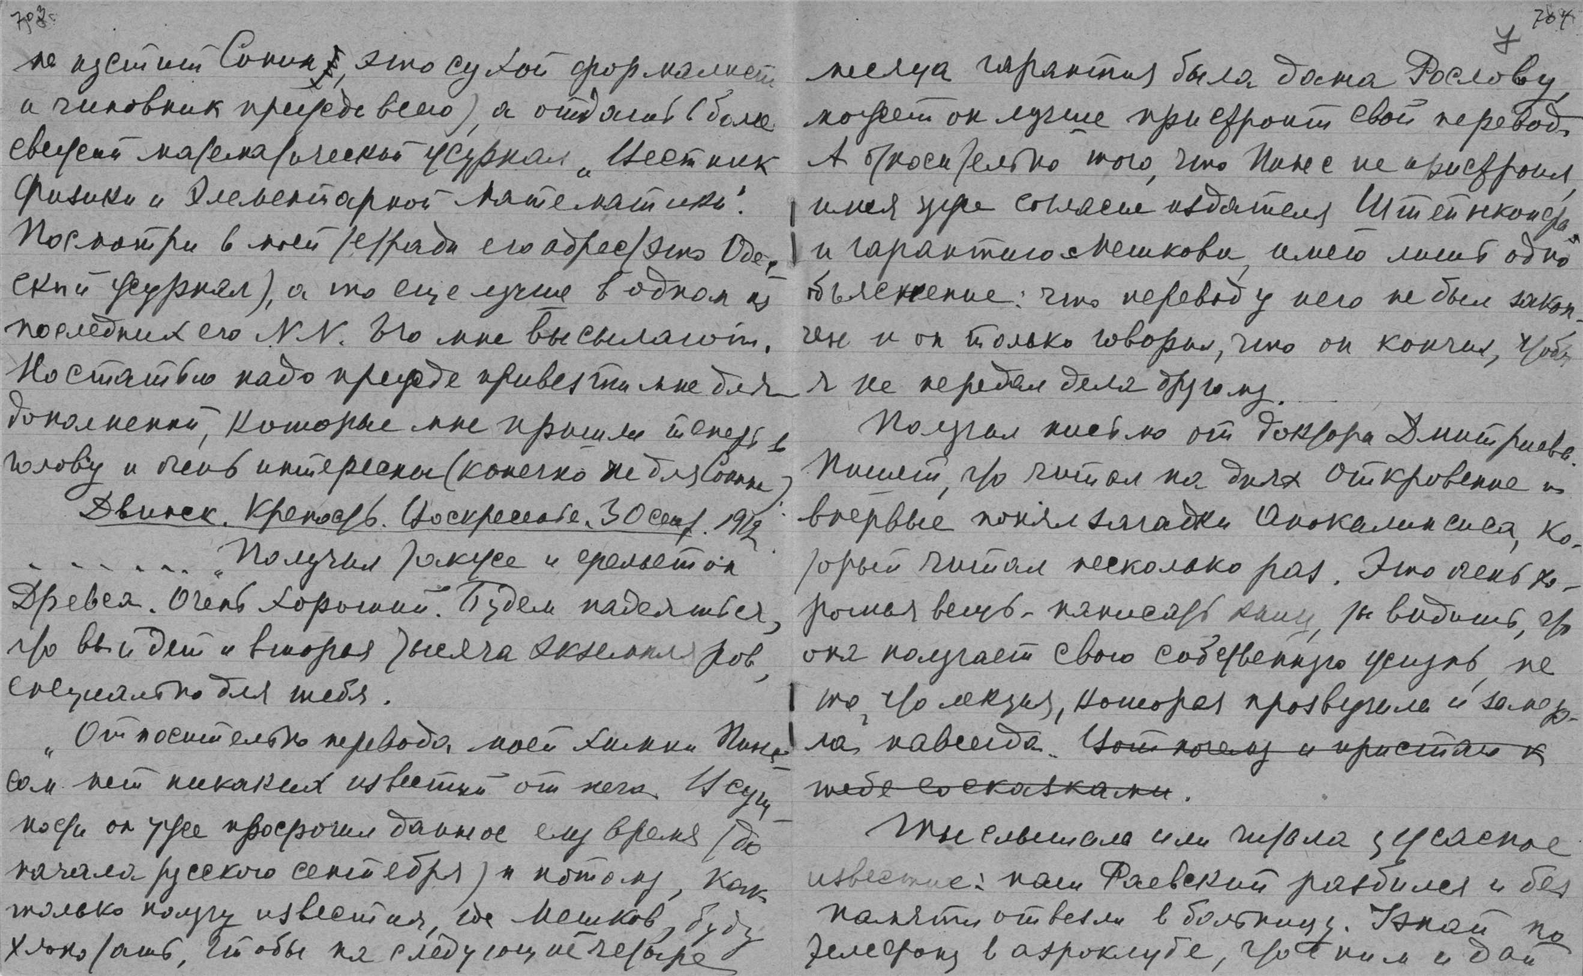 703
не пустит Сонин, это сухой формалист
и чиновник прежде всего), а отдать в более
свежий математический журнал „Вестник
Физики и Элементарной Математики".
Посмотри в моей тетради его адрес (это Одес-
ский журнал), а то еще лучше в одном из
последних его N.N. Его мне высылают.
Но статью надо прежде привезти мне для
дополнений, которые мне пришли теперь в
голову и очень интересны (конечно не для Сонина)
Двинск. Крепость. Воскресенье. 30 сент. 1912.
. . . . . . „Получил также и фельетон
Древса. Очень хороший. Будем надеяться,
что выйдет и вторая тысяча экземпляров,
специально для тебя.
„Относительно перевода моей химии Пине-
сом нет никаких известий от него. В сущ-
ности он уже просрочил данное ему время (до
начала русского сентября) и потому, как
только получу известия, где Мешков, буду
хлопотать, чтобы на следующие четыре
704
7
месяца гарантия была дана Рослову,
может он лучше пристроит свой перевод.
А относительно того, что Пинес не пристроил,
имея уже согласие издателя Штейнкопфа
и гарантию Мешкова, имею лишь одно
объяснение: что перевод у него не был закон-
чен и он только говорил, что он кончил, чтобы
я не передал дела другому.
Получил письмо от доктора Дмитриева.
Пишет, что читал на днях Откровение и
впервые понял загадки Апокалипсиса, ко-
торый читал несколько раз. Это очень хо-
рошая вещь - написать книгу, ты видишь, что
она получает свою собственную жизнь, не
то, что лекция, которая прозвучала и замер-
ла навсегда. Вот почему и пристаю к
тебе со сказками.
Ты слышала или читала ужасное
известие: наш Раевский разбился и без
памяти отвезли в больницу. Узнай по
телефону в аэроклубе, что с ним и дай